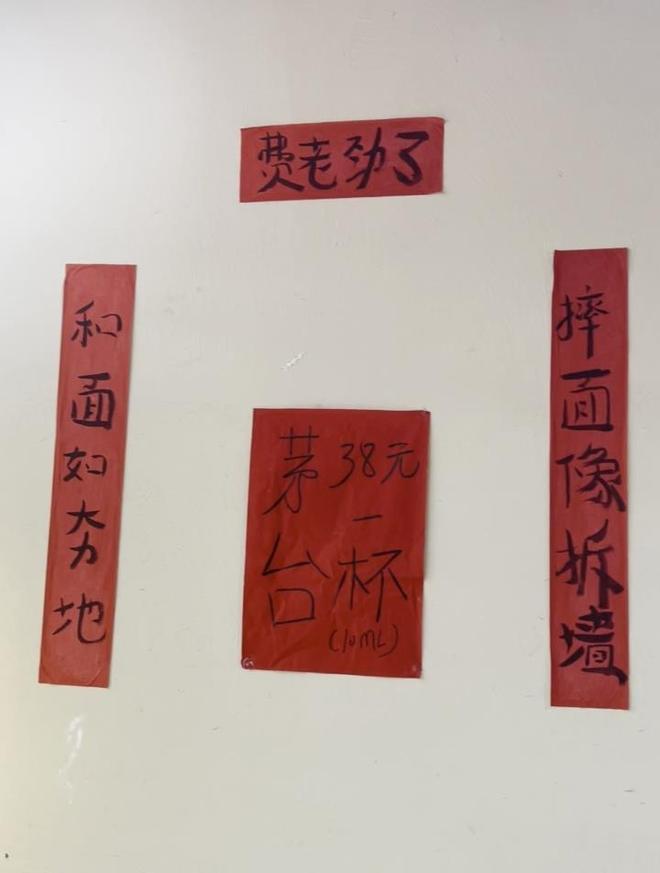 费老劲了
和面如夯地
摔面像拆墙
茅台
38元
一
杯
(10ML)